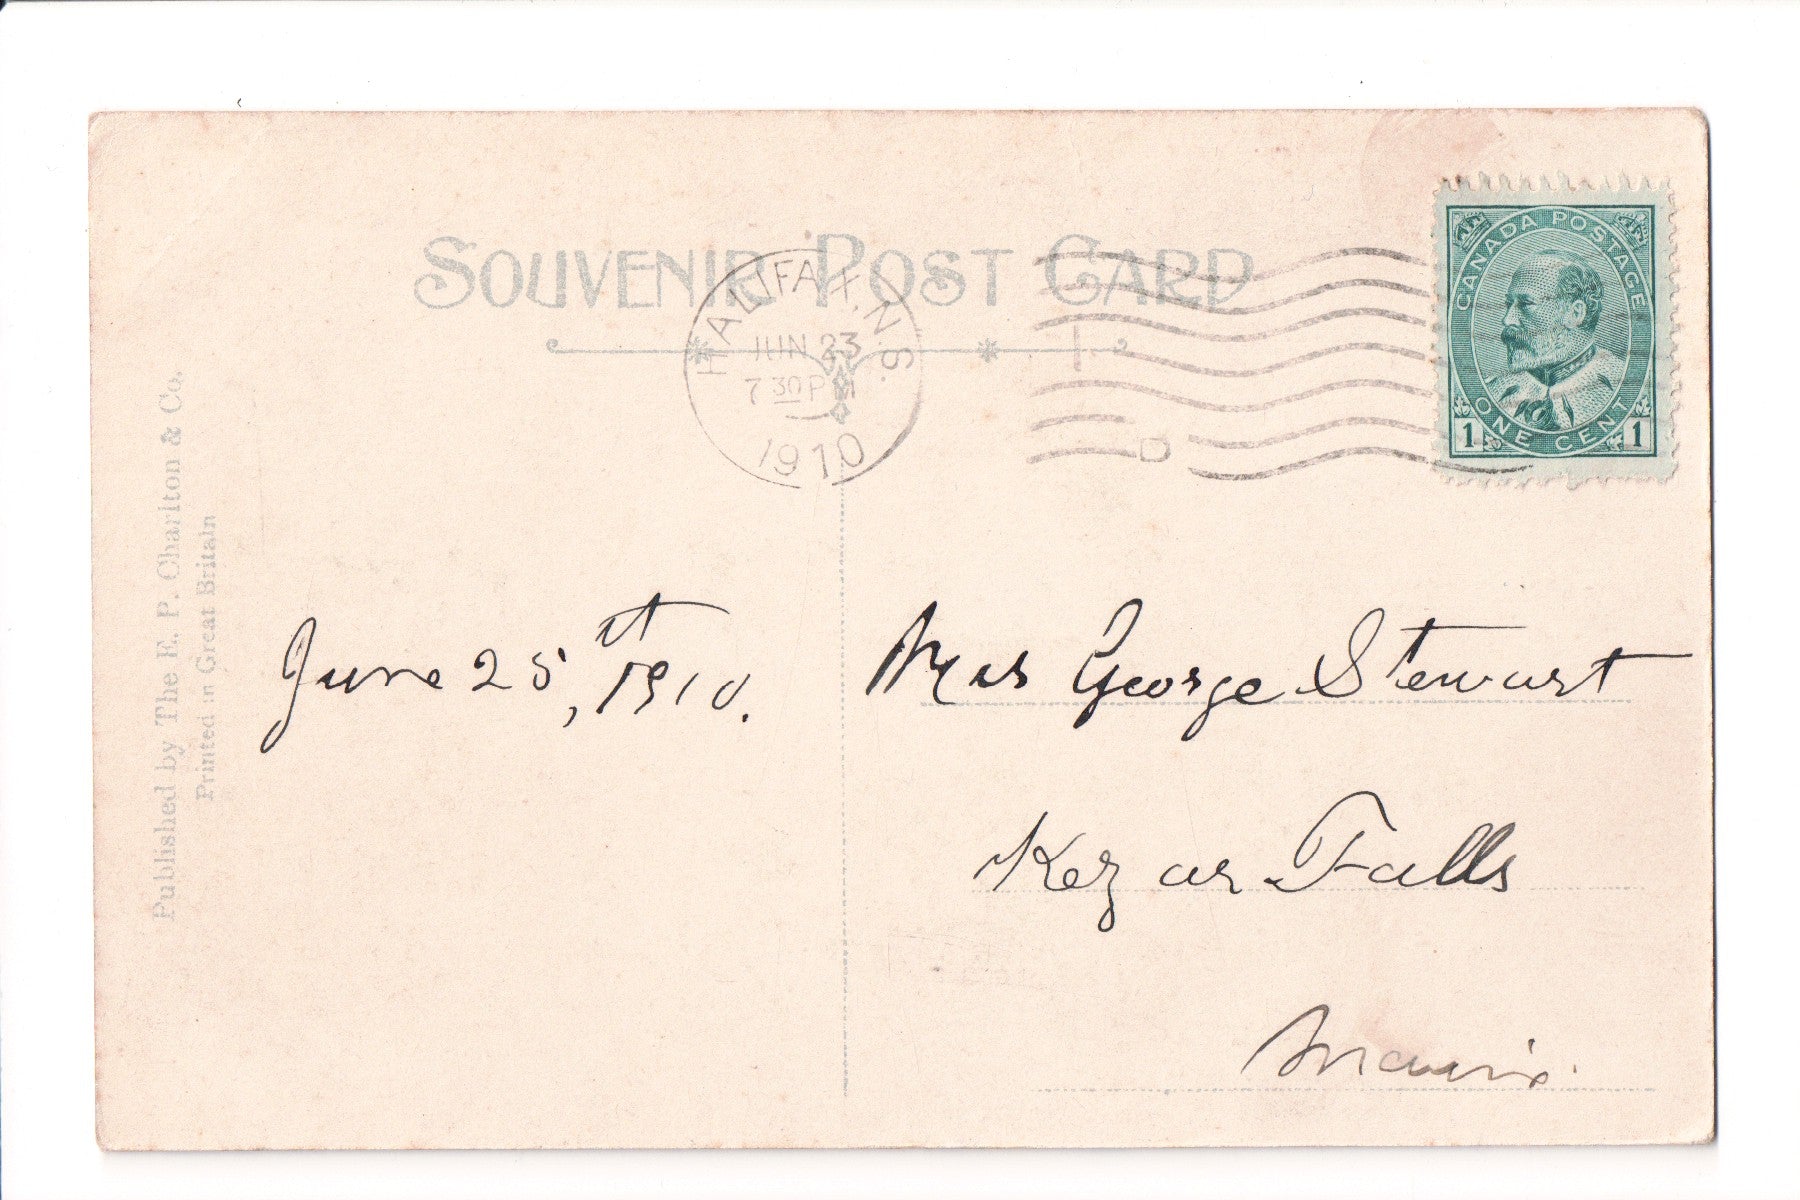 SOUVENIR POST CARD
HALIFAX, N.S.
JUN 23
7 30 PM
1910
D
CANADA POSTAGE
ONE CENT
1 1
Published by The E. P. Charlton & Co.
Printed in Great Britain
June 25, 1910.
Mrs George Stewart
Kezar Falls
Maine.